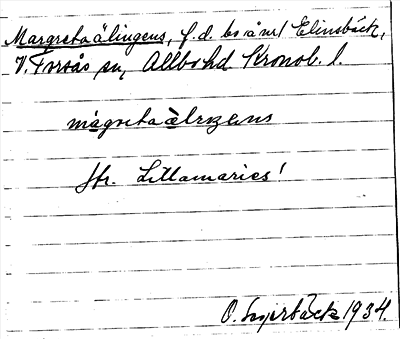 Margretaälingens, f.d. bs i å nr 1 Elinsbäck,
V. Torsås sn, Allbo hd Kronob. l.
màgretaälızens
Jfr. Lillamaries!
O. 1934.